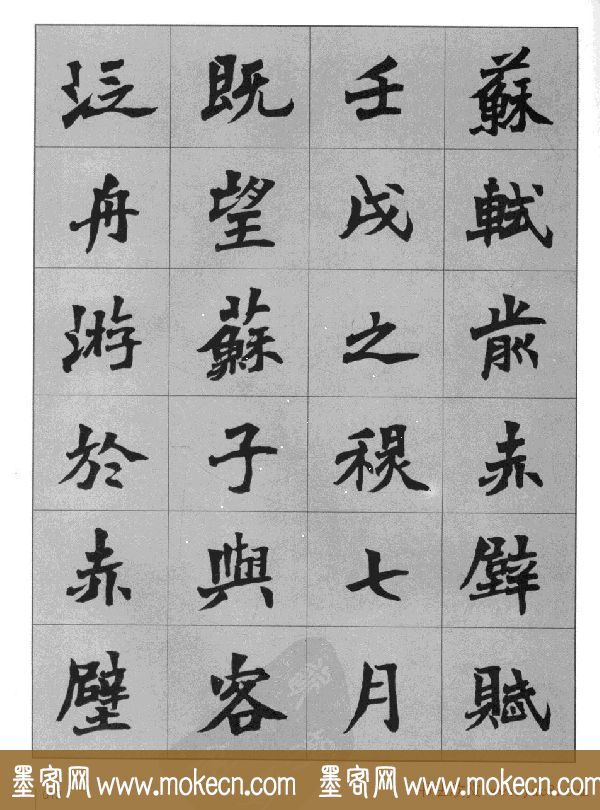 蘇軾前赤壁賦
壬戌之秋七月
既望蘇子與客
泛舟游於赤壁
墨客网www.mokecn.com 墨客网www.mokecn.com